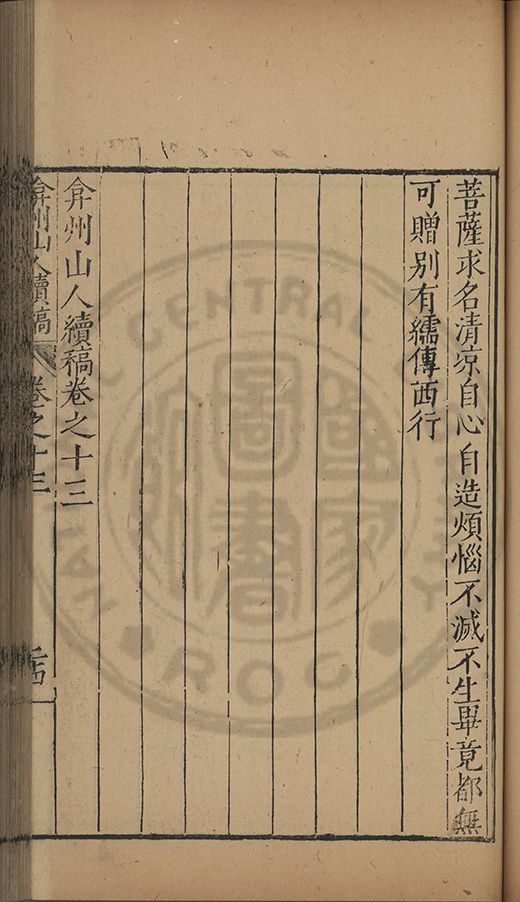 菩薩求名清凉自心自造煩惱不滅不生畢竟都無
可贈別有繻傳西行
弇州山人續稿卷之十三
弇州山人續稿 卷之十三
CENTRAL
國家圖書館
R.O.C.